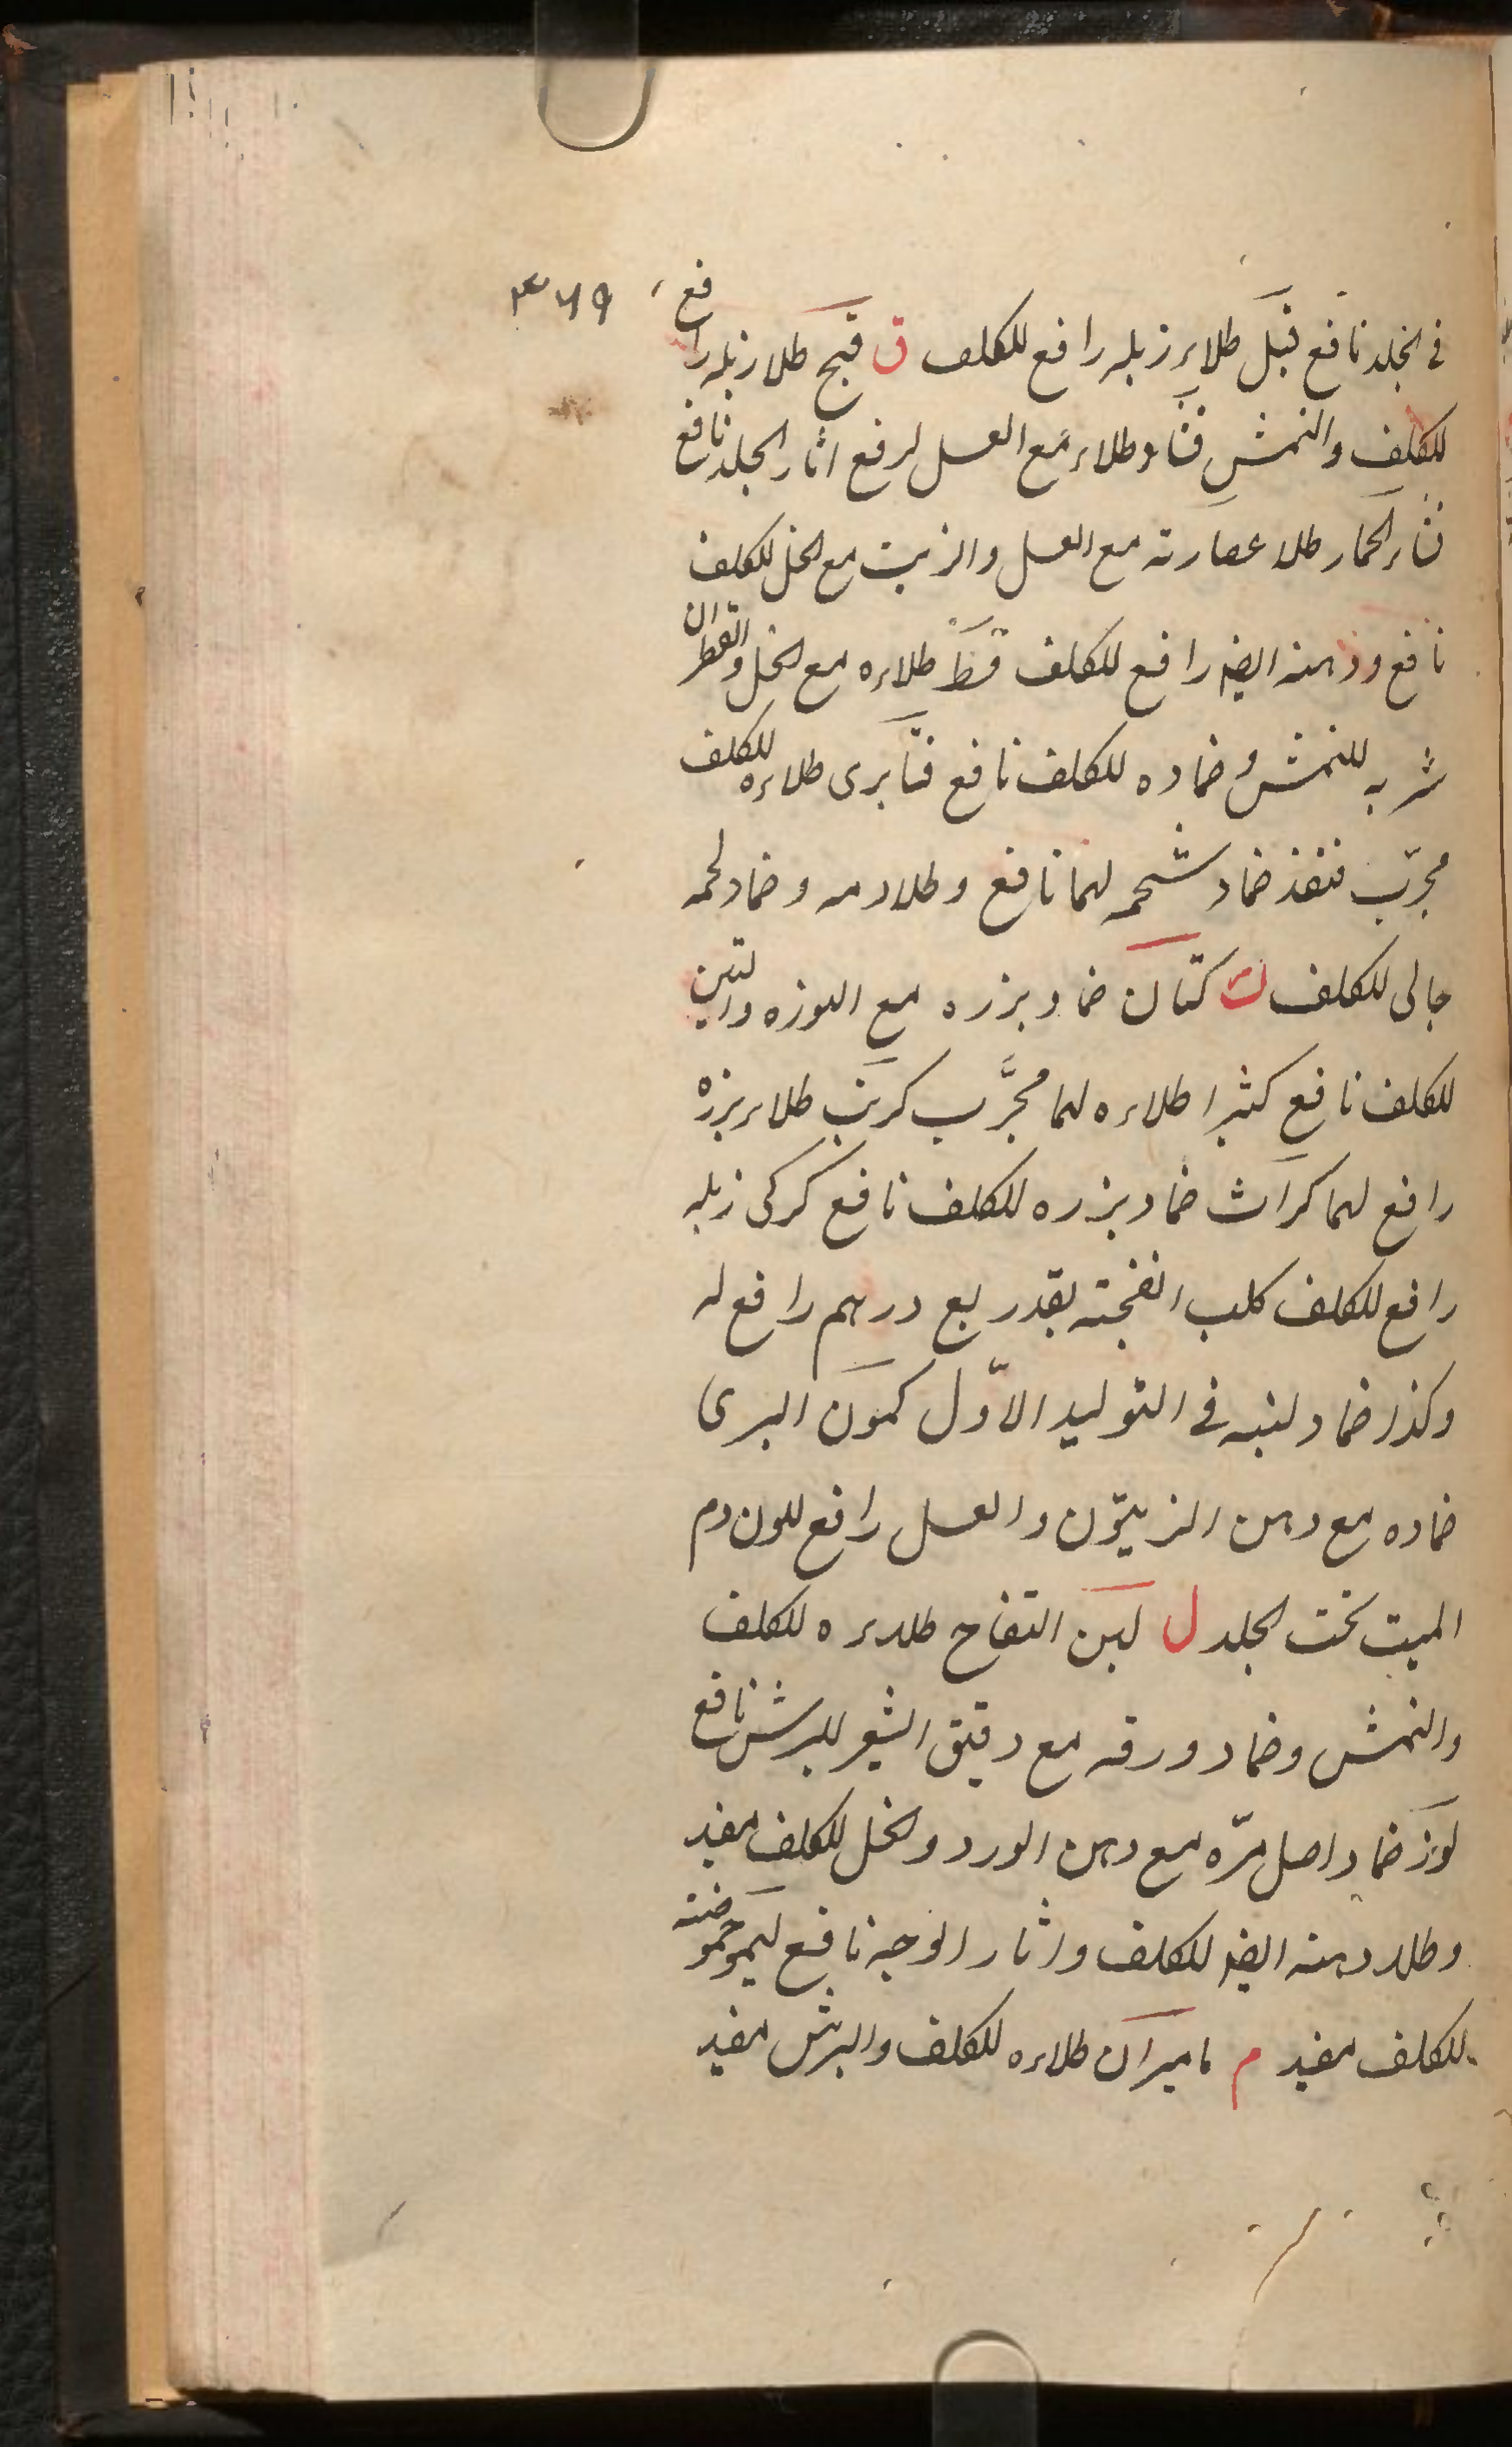 ۳۶۹
فی الجلد نافع فیل طلاء زبله رافع للکلف ق قبج طلا زبله رافع
للکلف والنمش قثاء طلاء مع العسل لرفع اثار الجلد نافع
قثاء الحمار طلا عصارته مع العسل والزیت مع الخل للکلف
نافع ودهنه ایضا رافع للکلف قسط طلاءه مع الخل والقطران
شربه للنمش وضماده للکلف نافع قنابری طلاءه للکلف
مجرّب قنفذ ضماد شحمه لهما نافع وطلا دمه وضماد لحمه
جالی للکلف ک کتان ضماد بزره مع البوره والتین
للکلف نافع کثیرا طلاءه لهما مجرّب کرنب طلاء بزره
رافع لهما کراث ضماد بزره للکلف نافع کرکی زبله
رافع للکلف کلب انفجته بقدر ربع درهم رافع له
وکذا ضماد لبنه فی التولید الاوّل کمون البری
ضماده مع دهن الزیتون والعسل رافع للون دم
المیت تحت الجلد ل لبن التفاح طلاءه للکلف
والنمش وضماد ورقه مع دقیق الشعیر للبرش نافع
لوز ضماد اصل مرّه مع دهن الورد والخل للکلف مفید
وطلا دهنه ایضا للکلف واثار الوجه نافع لیمو حموضته
للکلف مفید م مامیران طلاءه للکلف والبرش مفید